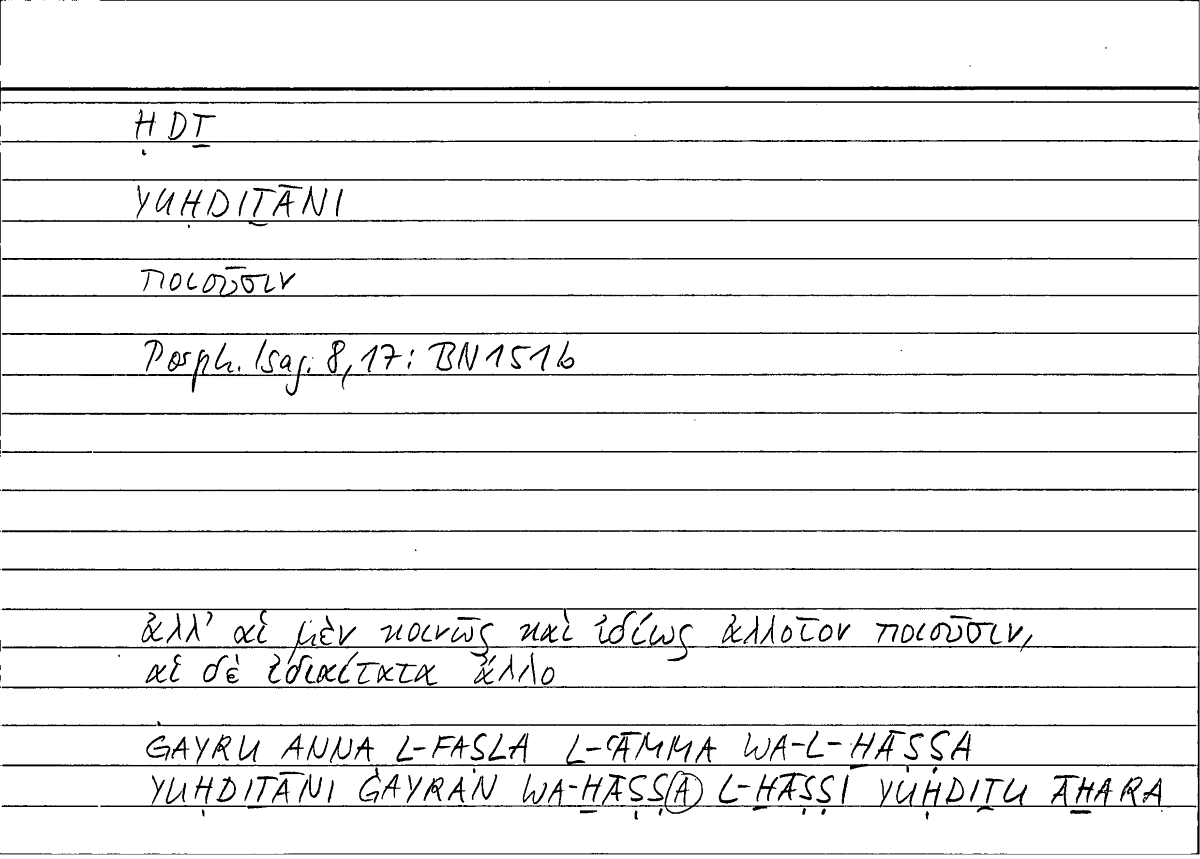 ḤDṮ
YUḤDIṮĀNI
ποιοῦσιν
Porph. Isag. 8,17: BN151b
ἀλλ' αἱ μὲν κοινῶς καὶ ἰδίως ἀλλοῖον ποιοῦσιν,
αἱ δὲ ἰδιαίτατα ἄλλο
ĠAYRU ANNA L-FAṢLA L-ʿĀMMA WA-L-ḪĀṢṢA
YUḤDIṮĀNI ĠAYRAN WA-ḪĀṢṢ(A) L-ḪĀṢṢI YUḤDIṮU ĀḪARA